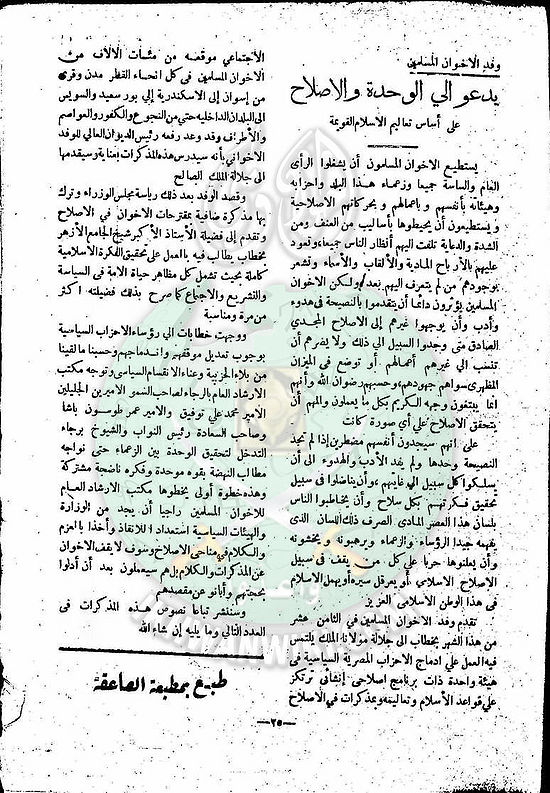 وفد الاخوان المسلمين
يدعو الي الوحدة والاصلاح
على أساس تعاليم الاسلام القويمة
يستطيع الاخوان المسلمون أن يشغلوا الرأى
العام والساسة جميعا وزعماء هـذا البلد واحزابه
وهيئاته بأنفسهم و باعمالهم و بحركاتهم الاصلاحية
و يستطيعون أن يحيطوها بأساليب من العنف ومن
الشدة والدعاية تلفت اليهم أنظار الناس جميعا، وتعود
عليهم بالأرباح المادية والألقاب والأسماء وتشعر
بوجودهم من لم يتعرف اليهم بعد، ولكن الاخوان
المسلمين يؤثرون دائما أن يتقدموا بالنصيحة فى هدوء
وأدب وأن يوجهوا غيرهم إلى الاصلاح المجدي
الصادق متى وجدوا السبيل الي ذلك ولا يضرهم أن
تنسب الي غيرهم أعمالهم أو توضع فى الميزان
المظهرى سواهم جهودهم، وحسبهم رضوان الله وأنهم
انما يبتغون وجهه الكريم بكل ما يعملون والمهم أن
يتحقق الاصلاح على أي صورة كانت
على انهم سيجدون أنفسهم مضطرين إذا لم تجد
النصيحة وحدها ولم يفد الأدب والهدوء الى أن
يسلكوا كل سبيل الي غايتهم، وأن يناضلوا فى سبيل
تحقيق فكرتهم بكل سلاح وأن يخاطبوا الناس
بلسان هذا العصر المادى الصرف ذلك اللسان الذى
يفهمه جيدا الرؤساء والزعماء و يرهبونه ويخشونه
وأن يعلنوها حربا على كل من يقف فى سبيل
الاصلاح الاسلامي، أو يعرقل سيره أو يهمل الاسلام
فى هذا الوطن الاسلامى العزيز
تقدم وفد الاخوان المسلمين فى الثامن عشر
من هذا الشهر بخطاب الى جلالة مولانا الملك يلتمس
فيه العمل علي ادماج الاحزاب المصرية السياسية فى
هيئة واحدة ذات برنامج اصلاحى إنشائى ترتكز
علي قواعد الأسلام وتعاليمه و بمذكرات فى الاصلاح
الاجتماعي موقعه من مئات الآلاف من
الاخوان المسلمين فى كل انحاء القطر مدن وقرى
من إسوان إلى الاسكندرية إلي بور سعيد والسويس
الى البلدان الداخليه حتي من النجوع والكفور والعواصم
والأطراف وقد وعد رفعه رئيس الديوان العالي للوفد
الاخواني بأنه سيدرس هذه المذكرات بعناية وسيقدمها
الى جلالة الملك الصالح
وقصد الوفد بعد ذلك رياسة مجلس الوزراء وترك
بها مذكرة ضافية بمقترحات الاخوان فى الاصلاح
وتقدم إلى فضيلة الأستاذ الأكبر شيخ الجامع الأزهر
بخطاب يطالب فيه بالعمل على تحقيق الفكرة الأسلامية
كاملة بحيث تشمل كل مظاهر حياة الامة فى السياسة
والتشريع والاجتماع كما صرح بذلك فضيلته اكثر
من مرة ومناسبة
ووجهت خطابات الي رؤساء الاحزاب السياسية
بوجوب تعديل موقفهم واندماجهم وحسبنا ما لقينا
من بلاء الحزبية وعناء الانقسام السياسى وتوجه مكتب
الارشاد العام بالرجاء لصاحب السمو الاميرين الجليلين
الأمير محمد علي توفيق والامير عمر طوسون باشا
وصاحب السعادة رئيس النواب والشيوخ برجاء
التدخل لتحقيق الوحدة بين الزعماء حتى نواجه
مطالب النهضة بقوه موحدة وفكره ناضجة مشتركة
وهذه خطوة أولى يخطوها مكتب الارشاد العام
للاخوان المسلمين راجيا أن يجد من الوزارة
والهيئات السياسية استعدادا للانقاذ وأخذا بالعزم
والكلام في مناحى الاصلاح وسوف لا يقف الاخوان
عن المذكرات والكلام بل هم سيعملون بعد أن أدلوا
بحجتهم وأبانو عن مقصدهم
وسننشر تباعا نصوص هذه المذكرات فى
العدد التالي وما يليه إن شاء الله
طبع بمطبعة الصاعقة
—٢٥—
IKHWANWIKI